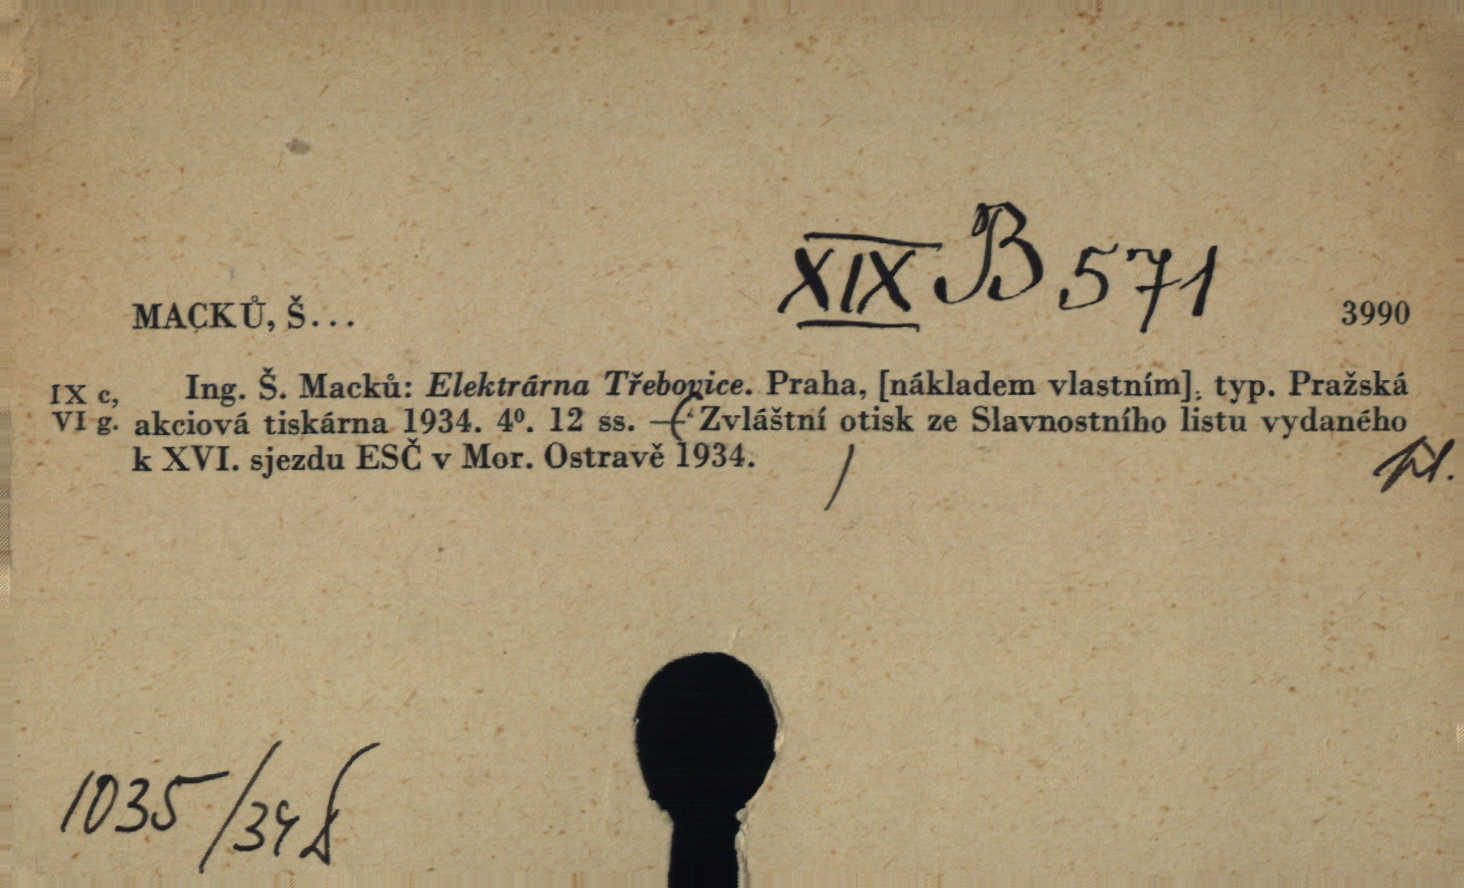 XIX B 571
MACKŮ, Š... 3990
IX c, Ing. Š. Macků: Elektrárna Třebovice. Praha, [nákladem vlastním], typ. Pražská
VI g. akciová tiskárna 1934. 4⁰. 12 ss. — (Zvláštní otisk ze Slavnostního listu vydaného
k XVI. sjezdu ESČ v Mor. Ostravě 1934.)
1035/34